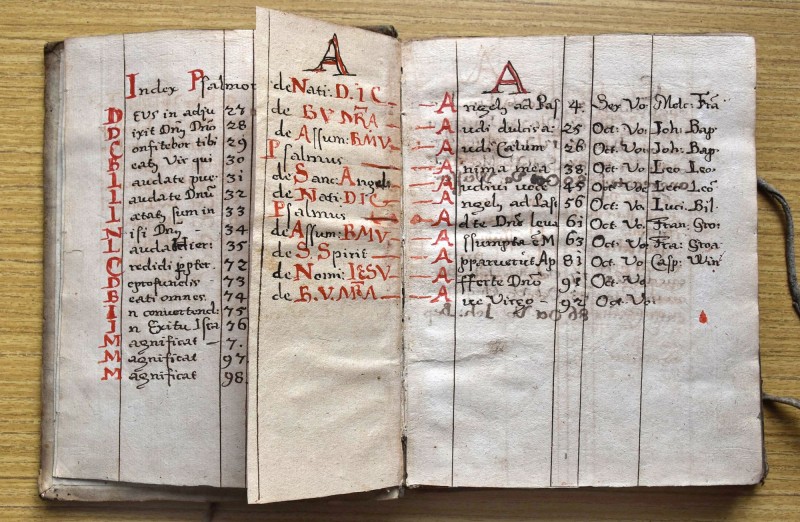 Index Psalmor
DEUS in adju 27
Dixit Dnꝰ Dño 28
Confitebor tibi 29
Beatꝰ Vir qui 30
Laudate pue: 31
Laudate Dnū 32
Lætatꝰ sum in 33
Nisi Dnꝰ 34
Lauda Hier: 35
Credidi ppter. 72
De profundis 73
Beati omnes. 74
In convertend: 75
In Exitu Isra 76
Magnificat 7.
Magnificat 97
Magnificat 98.
A
de Nati: D. I C
de B V MRA
de Assum: B M V
Psalmus
de Sanc: Angel
de Nati: D I C
Psalmus
de Assum: B M V
de S. Spirit
de Nomi: IESU
de B. V. MRA
A
Angelꝰ ad Pas 4. Sex Vo Melc: Fra
Audi dulcisa: 25 Oct: Vo: Joh: Bap
Audi Cælum 26 Oct: Vo: Joh: Bap.
Anima mea 38. Oct: Vo Leo Leo.
Audivi voce 45 Oct: Vo Leo Leo
Angelꝰ ad Pas: 56 Oct: Vo Luci: Bil.
Ad te Dnē levavi 61 Oct: Vo Fran: Gro:
Assumpta ē M 63 Oct. Vo. Fra: Groa
Apparuerūt Ap 81 Oct: Vo Casp: Win
Afferte Dño 91 Oct. Vo
Ave Virgo - 92 Oct: Vo: